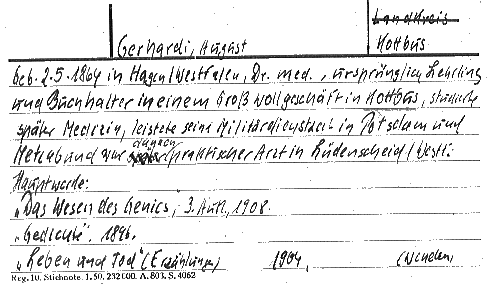 Landkreis
Gerhardi, August Kottbus
Geb. 2.5.1864 in Hagen/Westfalen, Dr. med., ursprünglich Lehrling
und Buchhalter in einem Großwollgeschäft in Kottbus, studierte
später Medizin, leistete seine Militärdienstzeit in Potsdam und
Metz ab und war danach praktischer Arzt in Lüdenscheid/Westf.
Hauptwerke:
„Das Wesen des Genies, 3. Aufl., 1908.
„Gedichte". 1896.
„Leben und Tod" (Erzählungen) 1904 (Minden)
Reg. 10. Stichnote. 1.50. 232000. A. 803. S. 4062